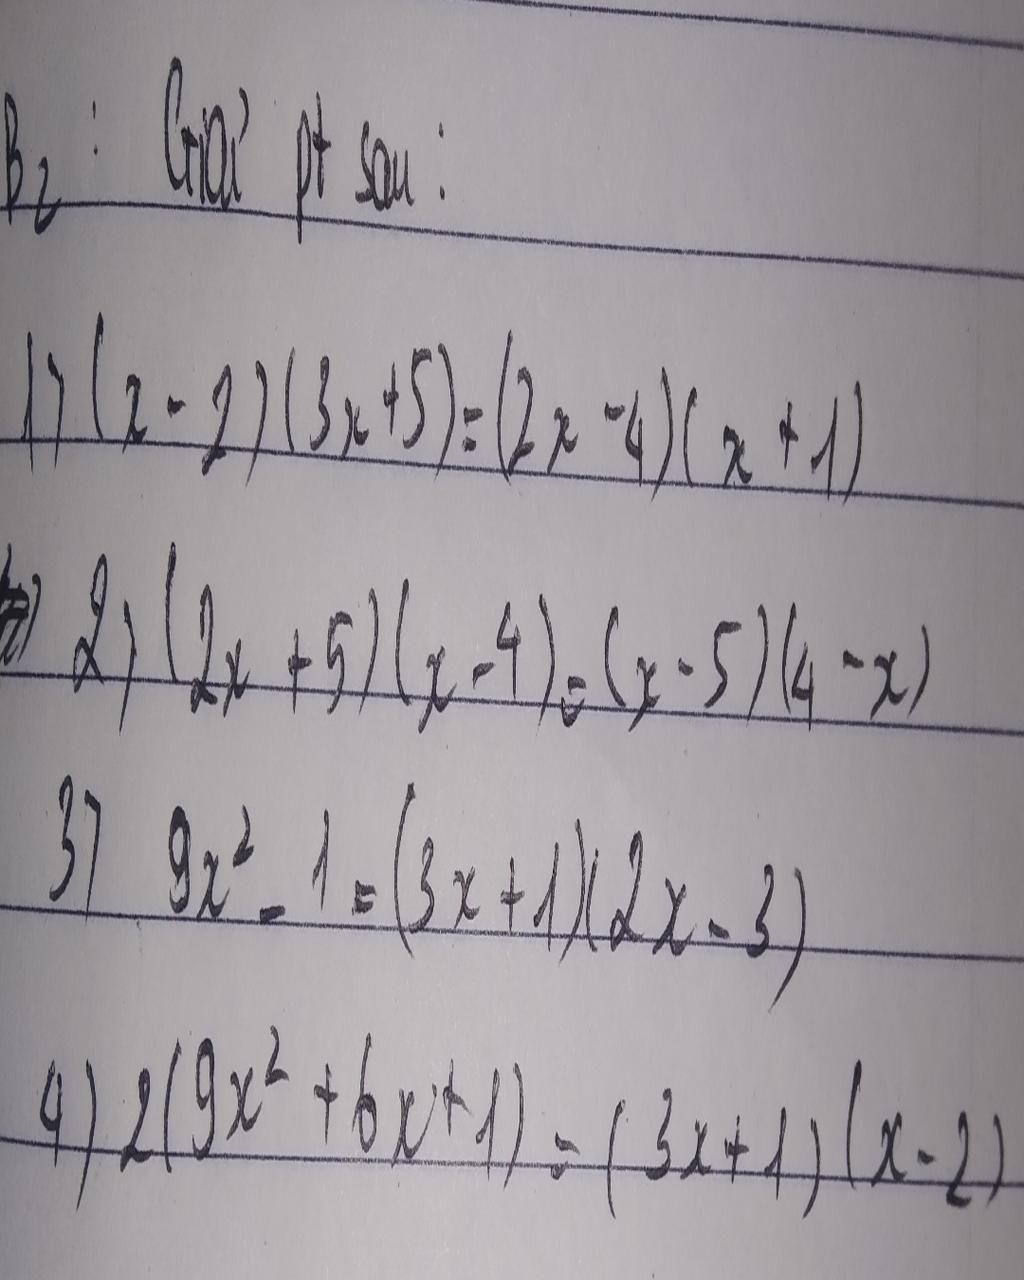 B2 : Giải pt sau :
1) (x - 2) (3x+5) = (2x -4) ( x + 1)
2) (2x +5) (x -4) = (x - 5) (4 - x)
3) 9x² - 1 = (3x +1) (2x - 3)
4) 2(9x² +6x+1) = ( 3x+1) (x-2)